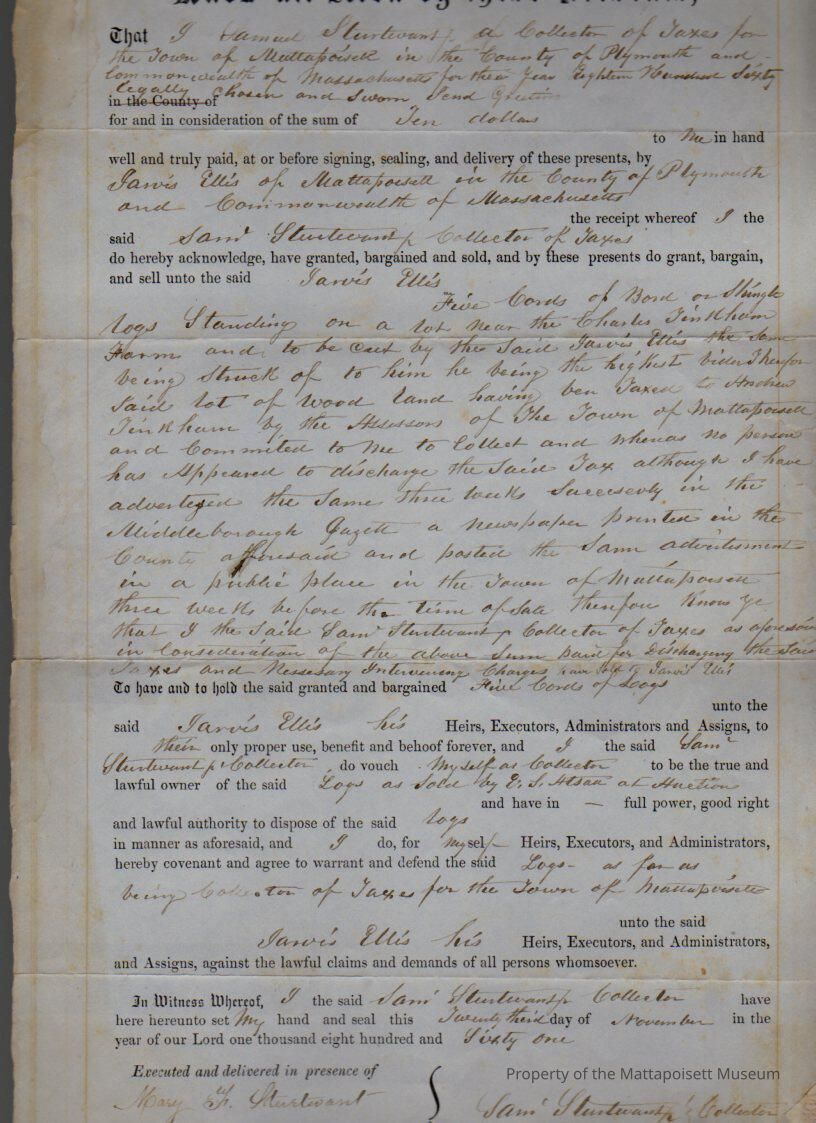 That I Samuel Sturtevant a Collector of Taxes for
the Town of Mattapoisett in the County of Plymouth and
Commonwealth of Massachusetts for the Year Eighteen Hundred Sixty
legally chosen and Sworn Send Greeting
in the County of
for and in consideration of the sum of Ten dollars
to Me in hand
well and truly paid, at or before signing, sealing, and delivery of these presents, by
Jarvis Ellis of Mattapoisett in the County of Plymouth
and Commonwealth of Massachusetts
the receipt whereof I the
said Sam Sturtevant Collector of Taxes
do hereby acknowledge, have granted, bargained and sold, and by these presents do grant, bargain,
and sell unto the said Jarvis Ellis
Five Cords of Bord or Shingle
logs Standing on a lot near the Charles Tinkham
Farm and to be cut by the Said Jarvis Ellis the Same
being Struck of to him he being the highest bider Therefor
Said lot of wood land having ben Taxed to Andrew
Tinkham by the Assessors of The Town of Mattapoisett
and Commited to Me to Collect and whereas no person
has Appeared to discharge the Said Tax although I have
advertised the Same three weeks Succesevly in the
Middleborough Gazett a newspaper printed in the
County afforesaid and posted the Same advertisment
in a public place in the Town of Mattapoisett
three weeks before the time of Sale therefore Know ye
that I the Said Sam Sturtevant Collector of Taxes as aforesaid
in Consideration of the above Sum paid for Discharging the Said
Taxes and Nessesary Intervening Charges have Sold to Jarvis Ellis
To have and to hold the said granted and bargained Five Cords of Logs
unto the
said Jarvis Ellis his Heirs, Executors, Administrators and Assigns, to
their only proper use, benefit and behoof forever, and I the said Sam
Sturtevant Collector do vouch Myself as Collector to be the true and
lawful owner of the said Logs as Sold by E. S. at Auction
and have in — full power, good right
and lawful authority to dispose of the said logs
in manner as aforesaid, and I do, for myself Heirs, Executors, and Administrators,
hereby covenant and agree to warrant and defend the said Logs - as far as
being Collector of Taxes for the Town of Mattapoisett
unto the said
Jarvis Ellis his Heirs, Executors, and Administrators,
and Assigns, against the lawful claims and demands of all persons whomsoever.
In Witness Whereof, I the said Sam Sturtevant Collector have
here hereunto set My hand and seal this Twenty third day of November in the
year of our Lord one thousand eight hundred and Sixty one
Executed and delivered in presence of
Property of the Mattapoisett Museum
Mary F. Sturtevant
Sam Sturtevant Collector